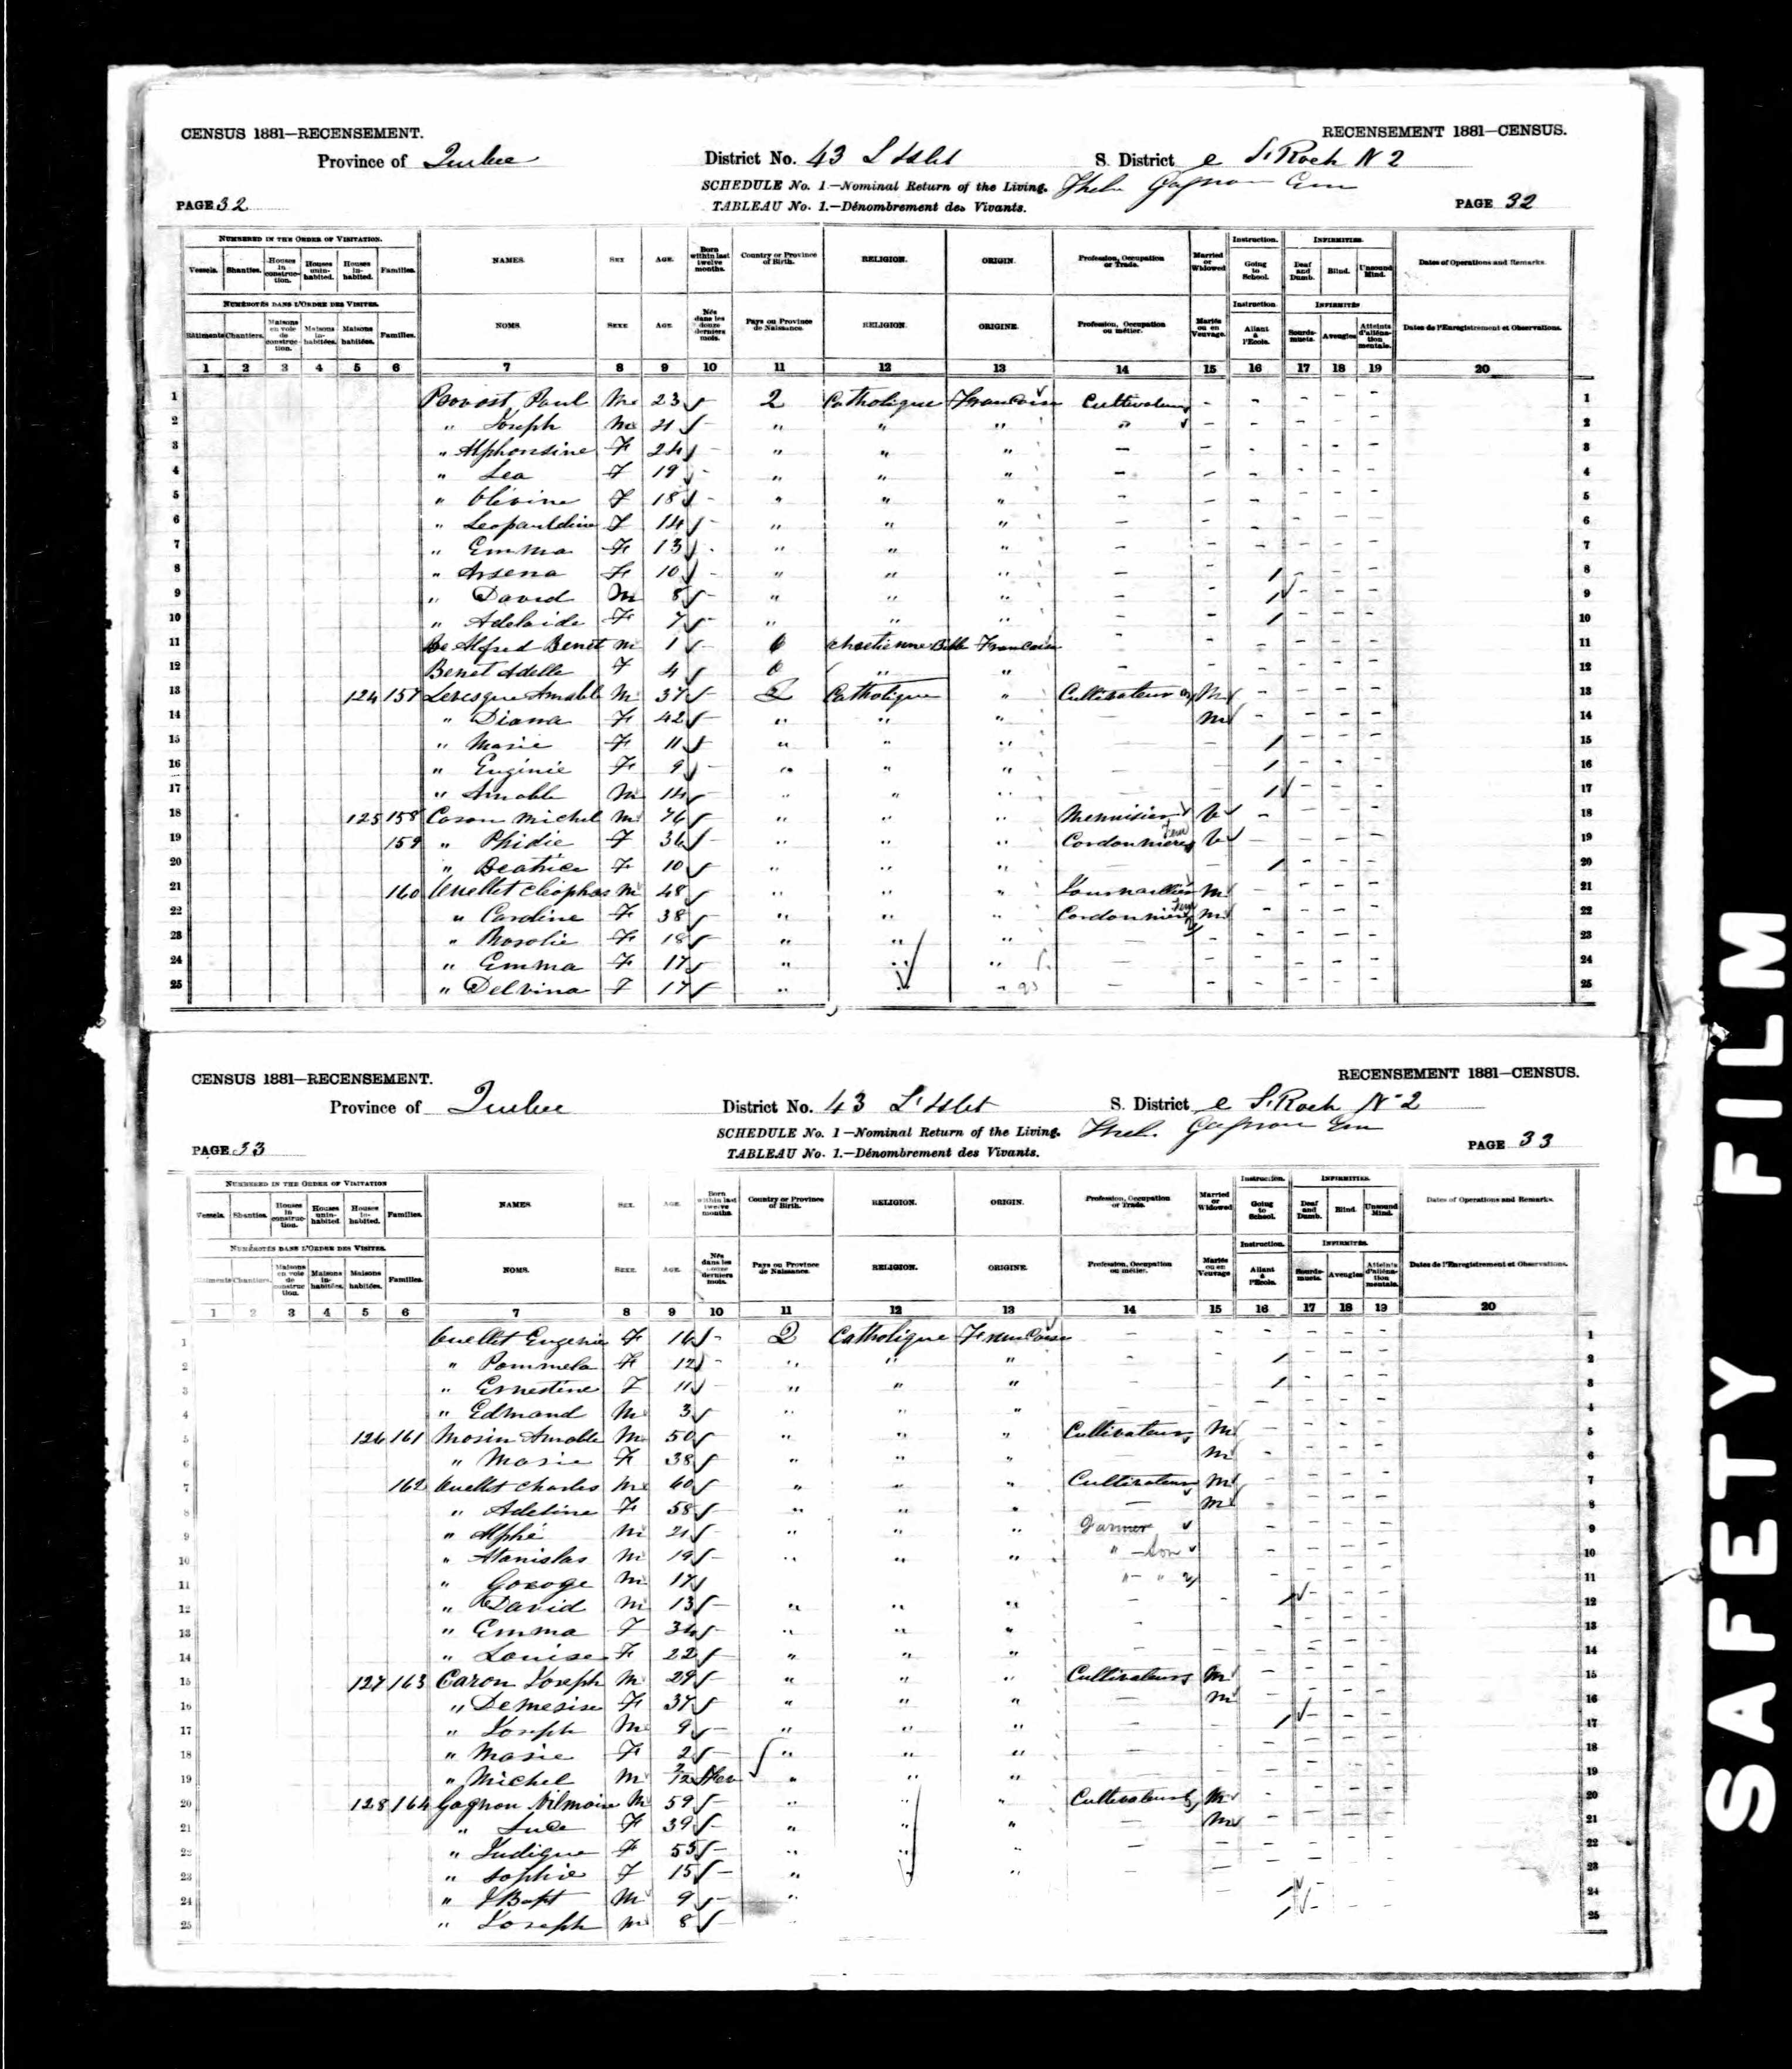 CENSUS 1881—RECENSEMENT. RECENSEMENT 1881—CENSUS.
Province of Quebec District No. 43 L'Islet S. District e St. Roch N 2
SCHEDULE No. 1.—Nominal Return of the Living. Gagnon
PAGE 32 TABLEAU No. 1.—Dénombrement des Vivants. PAGE 32
NUMBERED IN THE ORDER OF VISITATION. NAMES. SEX AGE. Born within last twelve months. Country or Province of Birth. RELIGION. ORIGIN. Profession, Occupation or Trade. Married or Widowed Instruction. Going to School. INFIRMITIES. Deaf and Dumb. Blind. Unsound Mind. Dates of Operations and Remarks.
Vessels. Shanties. Houses in construction. Houses uninhabited. Houses inhabited. Families.
NUMÉROTÉS DANS L'ORDRE DES VISITES. NOMS. SEXE AGE. Nés dans les douze derniers mois. Pays ou Province de Naissance. RELIGION. ORIGINE. Profession, Occupation ou métier. Mariés ou en Veuvage. Instruction. Allant à l'École. INFIRMITÉS Sourds-muets. Aveugles Atteints d'aliénation mentale. Dates de l'Enregistrement et Observations.
Bâtiments Chantiers. Maisons en voie de construction. Maisons inhabitées. Maisons habitées. Families.
1 2 3 4 5 6 7 8 9 10 11 12 13 14 15 16 17 18 19 20
1 Provost Paul M 23 - 2 Catholique Francaise Cultivateur - - - - - 1
2 " Joseph M 21 - " " " " - - - - - 2
3 " Alphonsine F 24 - " " " - - - - - - 3
4 " Lea F 19 - " " " - - - - - - 4
5 " Olévine F 18 - " " " - - - - - - 5
6 " Leopauldine F 14 - " " " - - - - - - 6
7 " Emma F 13 - " " " - - - - - - 7
8 " Arsena F 10 - " " " - - / - - - 8
9 " David M 8 - " " " - - / - - - 9
10 " Adelaide F 7 - " " " - - / - - - 10
11 Alfred Benet M 1 - 6 Francaise - - - - - - 11
12 Benet Adelle F 4 - 6 " " - - - - - - 12
13 124 157 Levesque Amable M 37 - 2 Catholique " Cultivateur M - - - - 13
14 " Diana F 42 - " " " - M - - - - 14
15 " Marie F 11 - " " " - - / - - - 15
16 " Eugénie F 9 - " " " - - / - - - 16
17 " Amable M 14 - " " " - - / - - - 17
18 125 158 Caron Michel M 76 - " " " Mennisier V - - - - 18
19 159 " Phidie F 36 - " " " Cordonniere V - - - - 19
20 " Beatrice F 10 - " " " - - / - - - 20
21 160 Ouellet Cléophas M 48 - " " " Journaillier M - - - - 21
22 " Caroline F 38 - " " " Cordonniere M - - - - 22
23 " Rosalie F 18 - " " " - - - - - - 23
24 " Emma F 17 - " " " - - - - - - 24
25 " Delvina F 17 - " " " - - - - - - 25
CENSUS 1881—RECENSEMENT. RECENSEMENT 1881—CENSUS.
Province of Quebec District No. 43 L'Islet S. District e St. Roch N° 2
SCHEDULE No. 1—Nominal Return of the Living. Gagnon
PAGE 33 TABLEAU No. 1.—Dénombrement des Vivants. PAGE 33
NUMBERED IN THE ORDER OF VISITATION NAMES. SEX. AGE. Born within last twelve months. Country or Province of Birth. RELIGION. ORIGIN. Profession, Occupation or Trade. Married or Widowed Instruction. Going to School. INFIRMITIES. Deaf and Dumb. Blind. Unsound Mind. Dates of Operations and Remarks.
Vessels. Shanties. Houses in construction. Houses uninhabited. Houses inhabited. Families.
NUMÉROTÉS DANS L'ORDRE DES VISITES. NOMS. SEXE. AGE. Nés dans les douze derniers mois. Pays ou Province de Naissance. RELIGION. ORIGINE. Profession, Occupation ou métier. Mariés ou en Veuvage Instruction. Allant à l'École. INFIRMITÉS. Sourds-muets. Aveugles Atteints d'aliénation mentale. Dates de l'Enregistrement et Observations.
Bâtiments Chantiers. Maisons en voie de construction. Maisons inhabitées. Maisons habitées. Families.
1 2 3 4 5 6 7 8 9 10 11 12 13 14 15 16 17 18 19 20
1 Ouellet Eugenie F 16 - 2 Catholique Francaise - - - - - - 1
2 " Pommela F 12 - " " " - - / - - - 2
3 " Ernestine F 11 - " " " - - / - - - 3
4 " Edmond M 3 - " " " - - - - - - 4
5 126 161 Morin Amable M 50 - " " " Cultivateur M - - - - 5
6 " Marie F 38 - " " " M - - - - 6
7 162 Ouellet Charles M 60 - " " " Cultivateur M - - - - 7
8 " Adeline F 58 - " " " - M - - - - 8
9 " Alphé M 21 - " " " Farmer - - - - 9
10 " Stanislas M 19 - " " " " - Son - - - - 10
11 " George M 17 " - " - - - - 11
12 " David M 13 - " " " - / - - - 12
13 " Emma F 34 - " " " - - - - - 13
14 " Louise F 22 - " " " - - - - - - 14
15 127 163 Caron Joseph M 29 - " " " Cultivateur M - - - - 15
16 " Demerise F 37 - " " " - M - - - - 16
17 " Joseph M 9 - " " " - - / - - - 17
18 " Marie F 2 - " " " - - - - - 18
19 " Michel M /12 " " " - - - - - 19
20 128 164 Gagnon M 59 - " " " Cultivateur M - - - - 20
21 " Luce F 39 - " " " - M - - - - 21
22 " F 55 - " " - - - - - - 22
23 " Sophie F 15 - " " " - - - - - 23
24 " J Bapt M 9 - " - / - 24
25 " Joseph M 8 - / - 25
SAFETY FILM